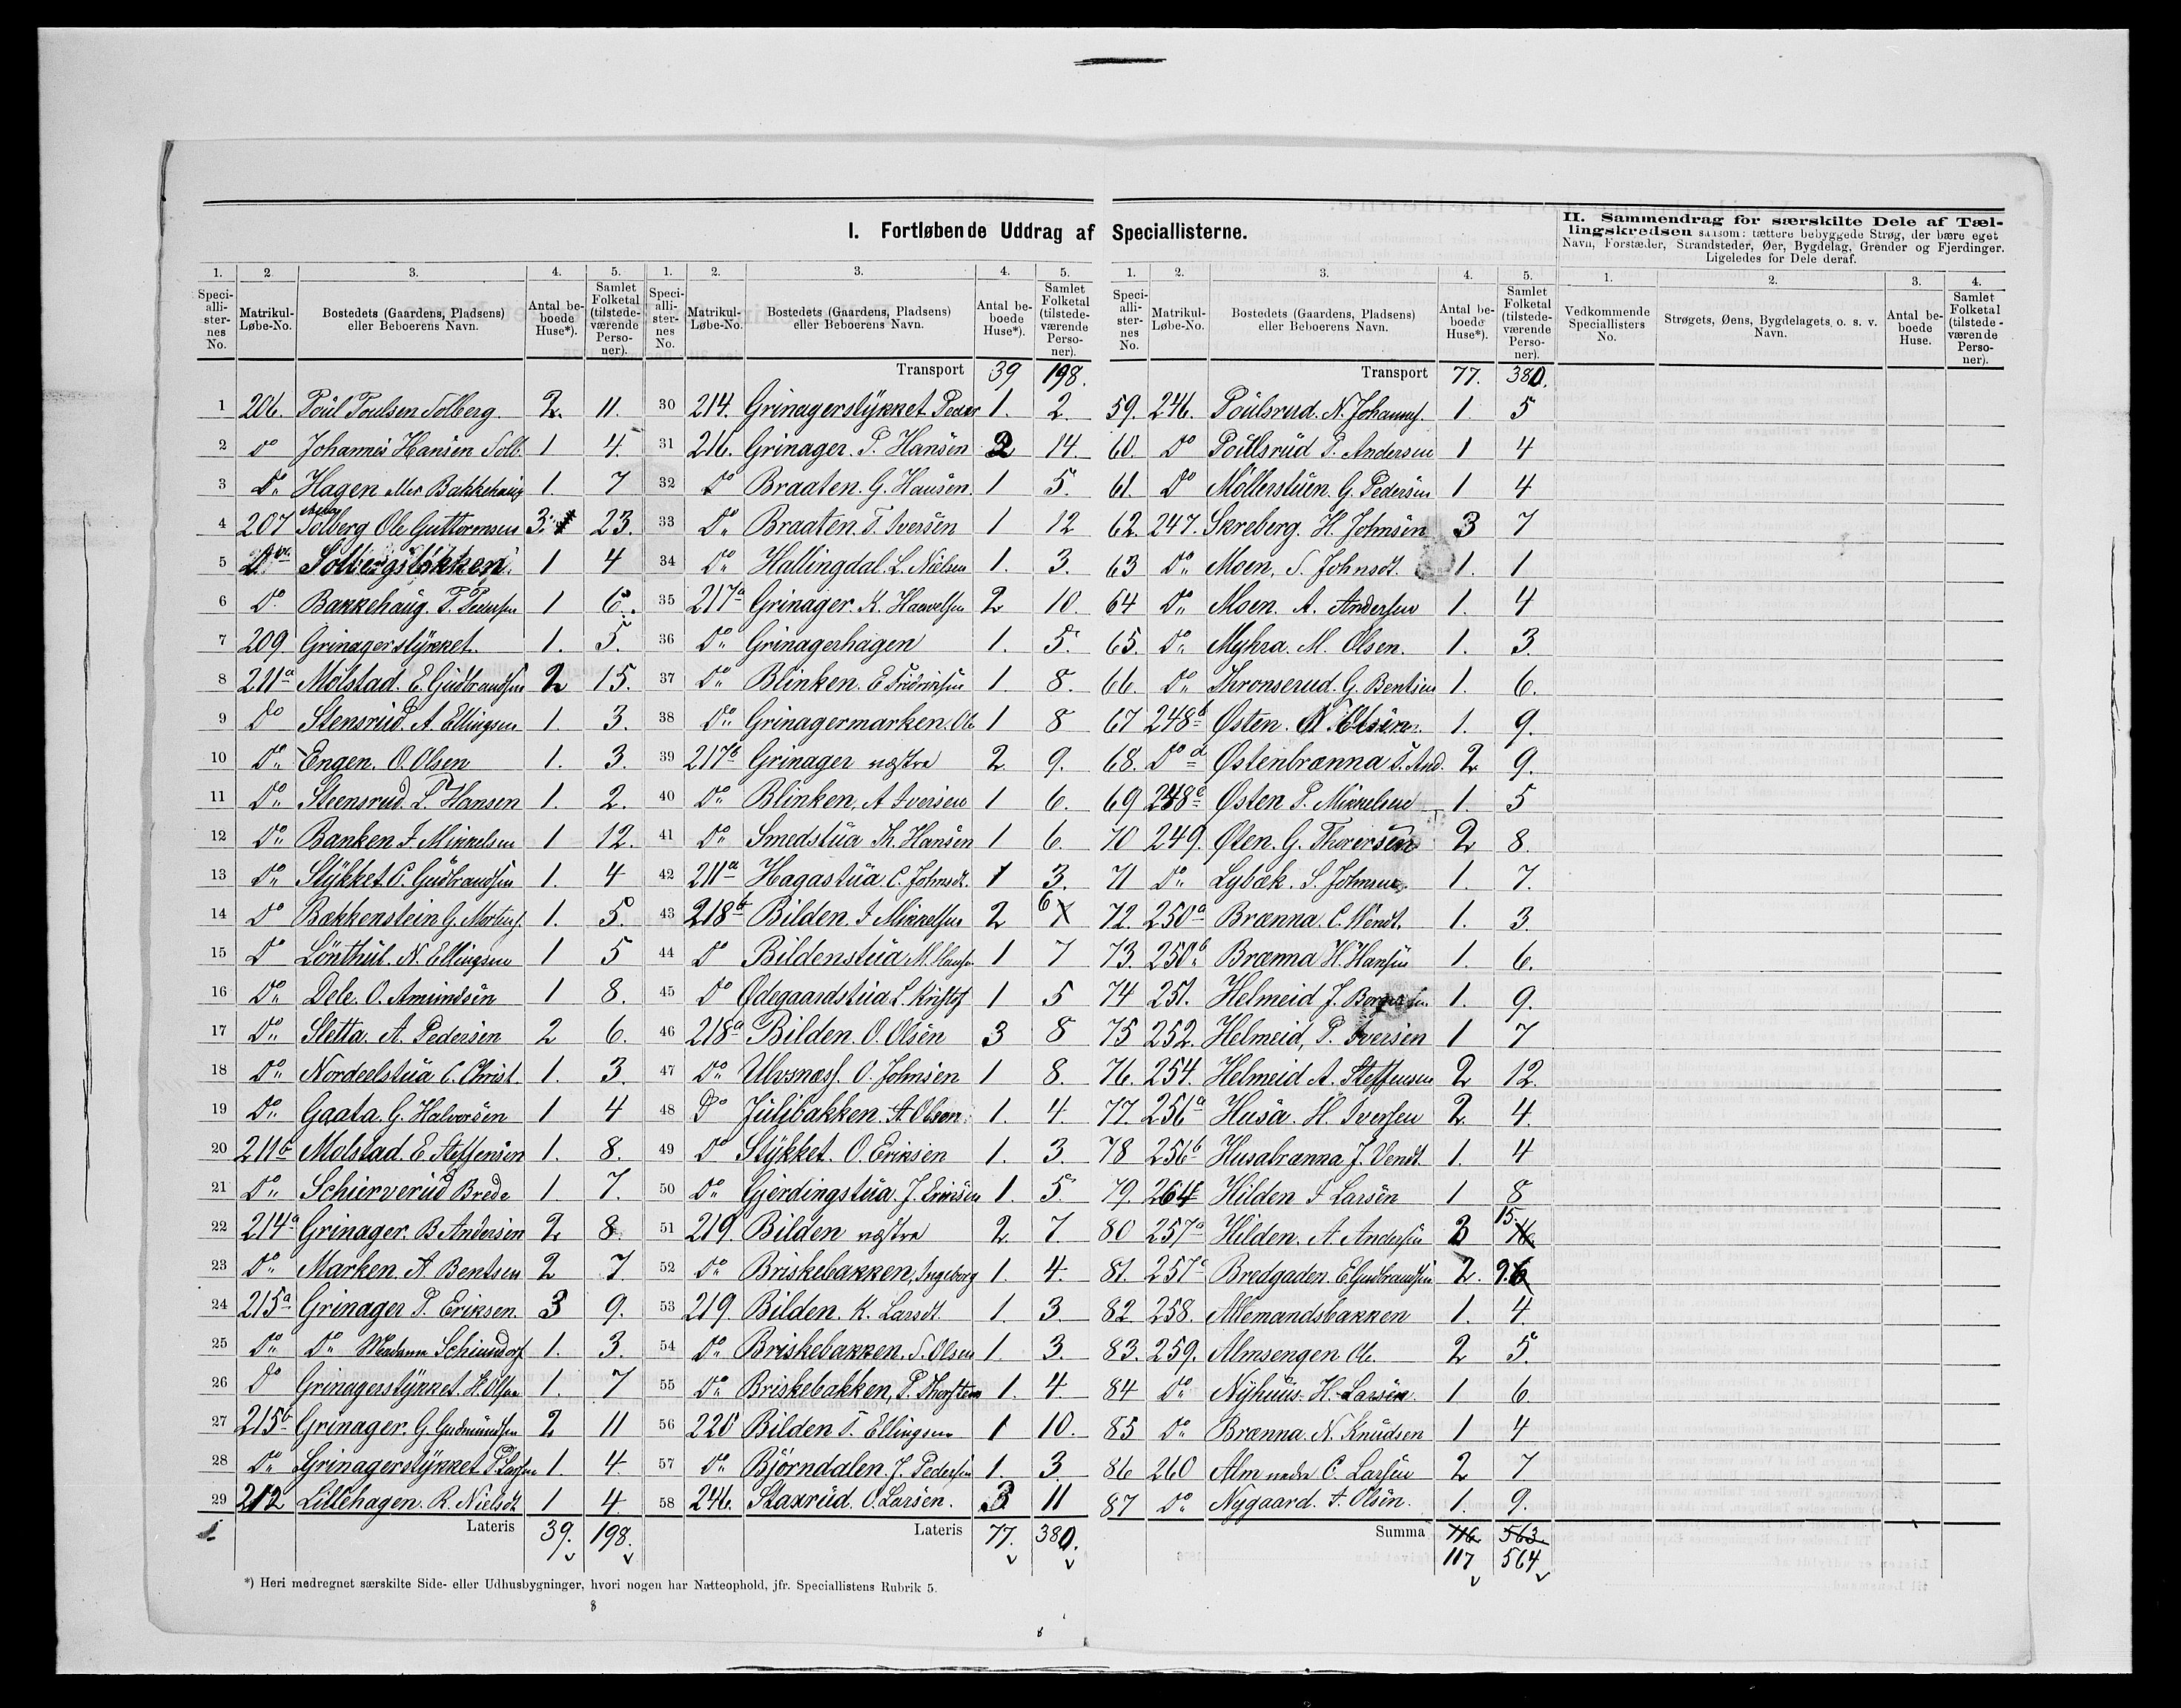 I. Fortløbende Uddrag af Speciallisterne.
II. Sammendrag for særskilte Dele af Tællingskredsen saasom: tættere bebyggede Strøg, der bære eget Navn, Forstæder, Strandsteder, Øer, Bygdelag, Grender og Fjerdinger. Ligeledes for Dele deraf.
1. 2. 3. 4. 5.
Speciallisternes No. Matrikul-Løbe-No. Bostedets (Gaardens, Pladsens) eller Beboerens Navn. Antal beboede Huse*). Samlet Folketal (tilstedeværende Personer).
1 206. Poul Poulsen Solberg 2. 11.
2 do Johannes Hansen Solb. 1 4.
3 Do Hagen eller Bakkehaug 1. 7
4 207 Solberg Ole Guttormsen 3. 23.
5 Do Solbergsløkken 1 4
6 Do Bakkehaug. P. Pedersen 1 6.
7 209. Grinagerstykket. 1. 5.
8 211a Molstad. E. Gudbrandsen 2 15.
9 Do Stensrud. A. Ellingsen 1. 3.
10 Do Engen. O. Olsen 1. 3.
11 Do Steensrud. L. Hansen 1. 2.
12 Do Banken I Mikkelsen 1 12.
13 Do Stykket. P. Gudbrandsen 1. 4
14 Do Bækkenstein G. Mortens. 1. 5.
15 Do Lønthul. N. Ellingsen 1 5
16 Do Dele. O. Amundsen 1 8.
17 Do Sletta. A. Pedersen 2 6.
18 Do Nordeelstua C. Christ. 1. 3.
19 Do Gaata. G. Halvorsen 1 4
20 211b Molstad. E. Steffensen 1. 8.
21 Do Schierverud Brede 1 7.
22 214a Grinager. B Andersen 2 8.
23 Do Marken. A Bentsen 2 7
24 215a Grinager P. Eriksen. 3 9.
25 Do Do Madame 1. 3.
26 Do Grinagerstykket. H. Olsen 1. 7
27 215b Grinager. G. Gudmundsen 2 11
28 Do Grinagerstykket P. Larsen 1. 4.
29 212 Lillehagen. R. Nielsdt. 1 4.
Lateris 39. 198.
1. 2. 3. 4. 5.
Speciallisternes No. Matrikul-Løbe-No. Bostedets (Gaardens, Pladsens) eller Beboerens Navn. Antal beboede Huse*). Samlet Folketal (tilstedeværende Personer).
Transport 39 198.
30 214. Grinagerstykket Peder 1. 2.
31 216. Grinager. P. Hansen 2 14.
32 Do Braaten. G. Hansen. 1 5.
33 Do Braaten. T. Iversen 1 12
34 Do Hallingdal. L. Nielsen 1. 3.
35 217a Grinager. K. Haavelsen 2 10.
36 Do Grinagerhagen 1. 5.
37 Do Blinken. E Fridriksen 1. 8.
38 Do Grinagermarken. Ole 1 8
39 217b Grinager vestre 2. 9.
40 Do Blinken, A Iversen 1 6.
41 Do Smedstua Th. Hansen 1 6.
42 211a Hagastua. C. Johnsdt. 1 3.
43 218b Bilden. I Mikkelsen 2 6
44 Do Bildenstua M. Hans. 1 7
45 Do Ødegaardstua L. Kristof 1 5
46 218a Bilden. O. Olsen 3 8
47 Do Ulvsnæss. O. Johnsen 1 8.
48 Do Julibakken. A. Olsen. 1. 4.
49 Do Stykket. O. Eriksen 1. 3.
50 Do Gjerdingstua. J. Eriksen 1. 5.
51 219. Bilden vestre 2. 7.
52 Do Briskebakken, Ingeborg 1. 4.
53 219. Bilden. K. Larsdt. 1. 3.
54 Do Briskebakken. S. Olsen 1. 3.
55 Do Briskebakken, P. Thorsten 1. 4.
56 220 Bilden T. Ellingsen 1 10.
57 Do Bjørndalen. J. Pedersen 1. 3.
58 246. Staxrud. O. Larsen. 3 11
Lateris 77. 380.
1. 2. 3. 4. 5.
Speciallisternes No. Matrikul-Løbe-No. Bostedets (Gaardens, Pladsens) eller Beboerens Navn. Antal beboede Huse*). Samlet Folketal (tilstedeværende Personer).
Transport 77. 380.
59. 246. Poulsrud. N. Johannes. 1. 5
60. Do Poulsrud P. Andersen 1 4
61. Do Møllerstuen. G. Pedersen 1 4
62. 247. Skreberg. H. Johnsen 3 7
63 Do Moen. S. Johnsdt. 1. 1
64 Do Moen. A. Andersen 1. 4
65. Do Myhra. M. Olsen. 1. 3.
66. Do Thronserud. G. Bentsen 1. 6.
67 248b Østen. N. Olsen. 1. 9.
68. Do d Østenbrænna T. And. 2. 9.
69 248c Østen P. Mikkelsen 1. 5
70 249. Østen. G. Thorersen 2 8.
71 Do Lybæk. S. Johnsen. 1. 7.
72. 250a Brænna. C. Wendt. 1. 3.
73. 250b Brænna H. Hansen 1. 6.
74 251. Helmeid J. Borgersen. 1. 9.
75 252. Helmeid, P. Iversen 1 7
76. 254. Helmeid A. Steffensen 2 12.
77. 256a Husa. H. Iversen 2. 4.
78 256b Husabrænna J. Vendt. 1. 4
79 264 Hilden I Larsen 1 8
80 257a Hilden. A. Andersen 3 15.
81. 257c Bredgaden. E. Gudbrandsen 2. 9.
82. 258. Allemandsbakken 1. 4.
83. 259. Almsengen Ole. 2 5.
84 Do Nyhuus. H. Larsen. 1 6.
85 Do Brænna. N. Knudsen 1 4
86 260 Alm nedre C. Larsen 2 7
87 Do Nygaard. A. Olsen. 1. 9.
Summa 116. 563.
117 564
1. 2. 3. 4.
Vedkommende Speciallisters No. Strøgets, Øens, Bygdelagets o. s. v. Navn. Antal beboede Huse. Samlet Folketal (tilstedeværende Personer).
*) Heri medregnet særskilte Side- eller Udhusbygninger, hvori nogen har Natteophold, jfr. Speciallistens Rubrik 5.
8